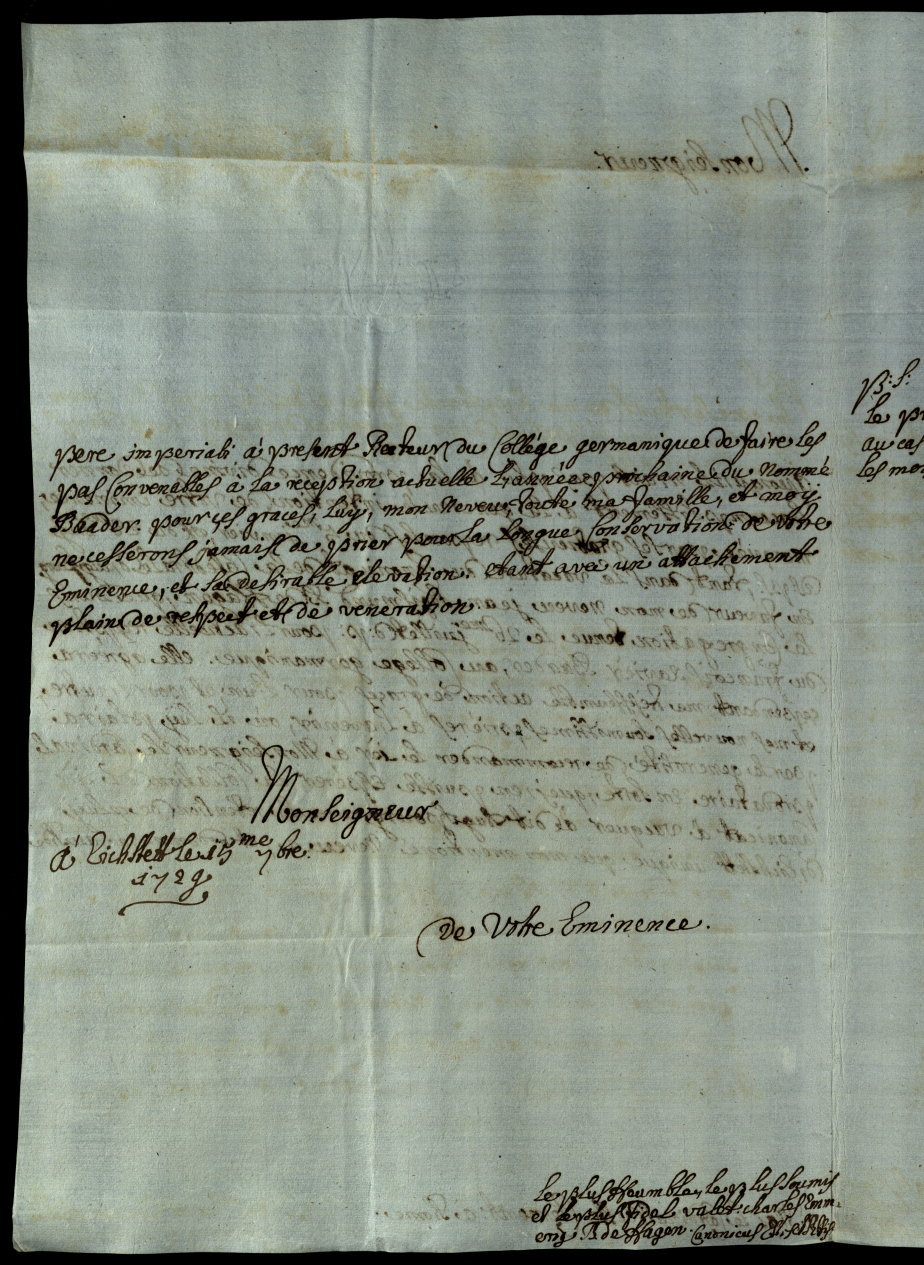 pere imperiali á present Recteur du Collége germanique de faire les
pas Convenables á la réception actuelle L'année prochaine du Nommé
Baader. pour çes graces, Luy, mon Neveu, toute ma famille, et moy
ne cesserons jamais de prier pour la Longue Conservation de Votre
Eminence, et sa desirable elevation. etant avec un attachement
plain de respect et de veneration
Monseigneur
á Eichstett le 15me 7bre.
1729
De Votre Eminence.
le plus Houmble, le plus soumis
et le plus Fidel valet charles Emm-
eric de Hagen Canonicus
p: s:
le pr
au cas
les mon